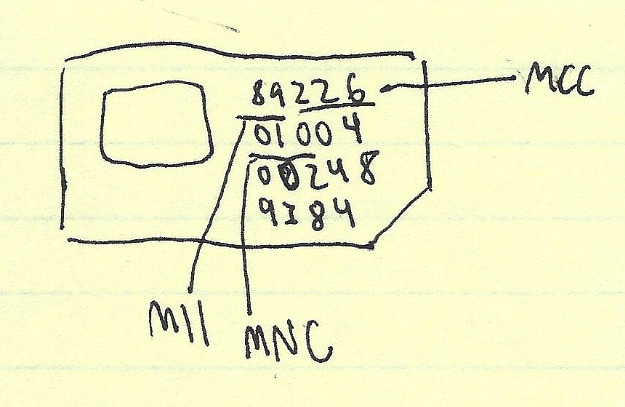 89226
MCC
01004
00248
9384
MII
MNC